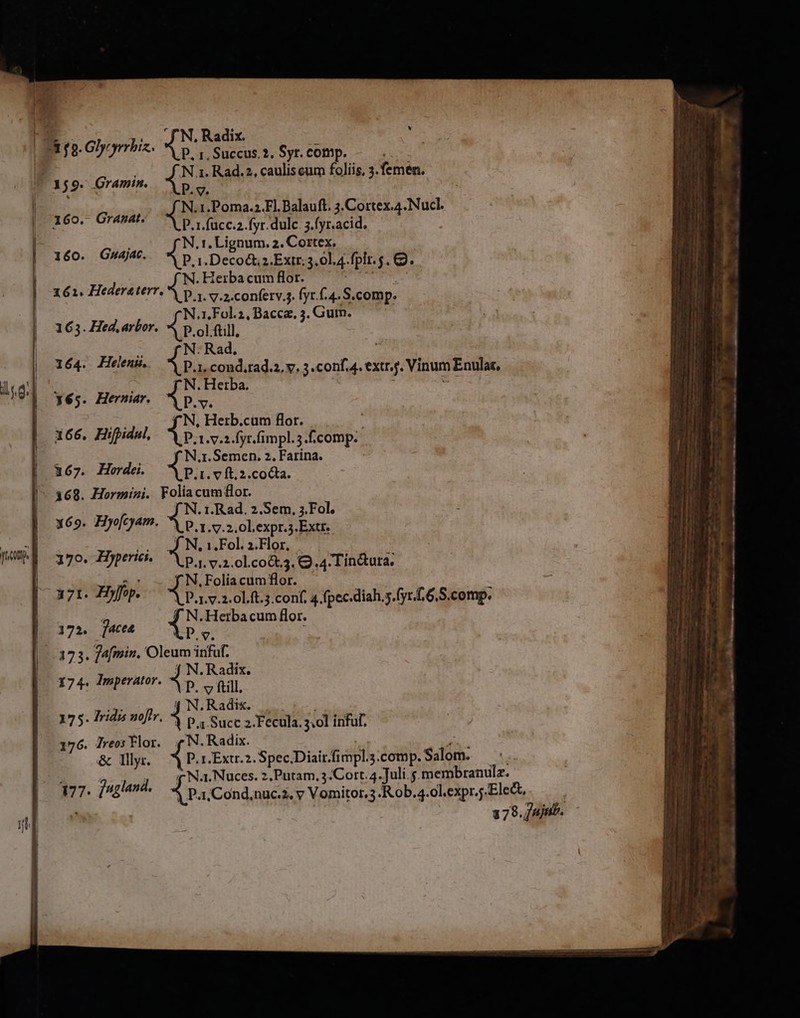 158. Glycyrrhiz. { N. Radix.
P. 1. Succus. 2. Syr. comp.
159. Gramin. { N. 1. Rad. 2, caulis cum foliis, 3. semen.
P. v.
160. Granat. { N. 1. Poma. 2. Fl. Balauſt. 3. Cortex. 4. Nucl.
P. 1. ſucc. 2. ſyr. dulc. 3. ſyr. acid.
160. Guajac. { N. 1. Lignum. 2. Cortex.
P. 1. Decoct. 2. Extr. 3. ol. 4. ſpir. 5. 🜔.
162. Hederæ terr. { N. Herba cum flor.
P. 1. v. 2. conſerv. 3. ſyr. ſ. 4. S. comp.
163. Hed. arbor. { N. 1. Fol. 2, Baccæ, 3. Gum.
P. ol. ſtill.
164. Helenii. { N. Rad.
P. 1. cond. rad. 2. v. 3. conf. 4. extr. 5. Vinum Enulat.
165. Herniar. { N. Herba.
P. v.
166. Hiſpidul. { N. Herb. cum flor.
P. 1. v. 2. ſyr. ſimpl. 3. ſ. comp.
167. Hordei. { N. 1. Semen. 2. Farina.
P. 1. v ſt. 2. cocta.
168. Hormini. Folia cum flor.
169. Hyoſcyam. { N. 1. Rad. 2. Sem. 3. Fol.
P. 1. v. 2. ol. expr. 3. Extr.
170. Hyperici. { N. 1. Fol. 2. Flor.
P. 1. v. 2. ol. coct. 3. 🜔. 4. Tinctura.
171. Hyſſop. { N. Folia cum flor.
P. 1. v. 2. ol. ſt. 3. conf. 4. ſpec. diah. 5. ſyr. ſ. 6. S. comp.
172. Jacea { N. Herba cum flor.
P. v.
173. Jaſmin. Oleum infuſ.
174. Imperator. { N. Radix.
P. v ſtill.
175. Iridis noſtr. { N. Radix.
P. 1 Succ 2. Fecula. 3. ol infuſ.
176. Ireos Flor. { N. Radix.
& Illyr. P. 1. Extr. 2. Spec. Diair. ſimpl. 3. comp. Salom.
177. Jugland. { N. 1. Nuces. 2. Putam. 3. Cort. 4. Juli. 5. membranulæ.
P. 1. Cond. nuc. 2. v Vomitor. 3. Rob. 4. ol. expr. 5. Elect.
178. Jujub.